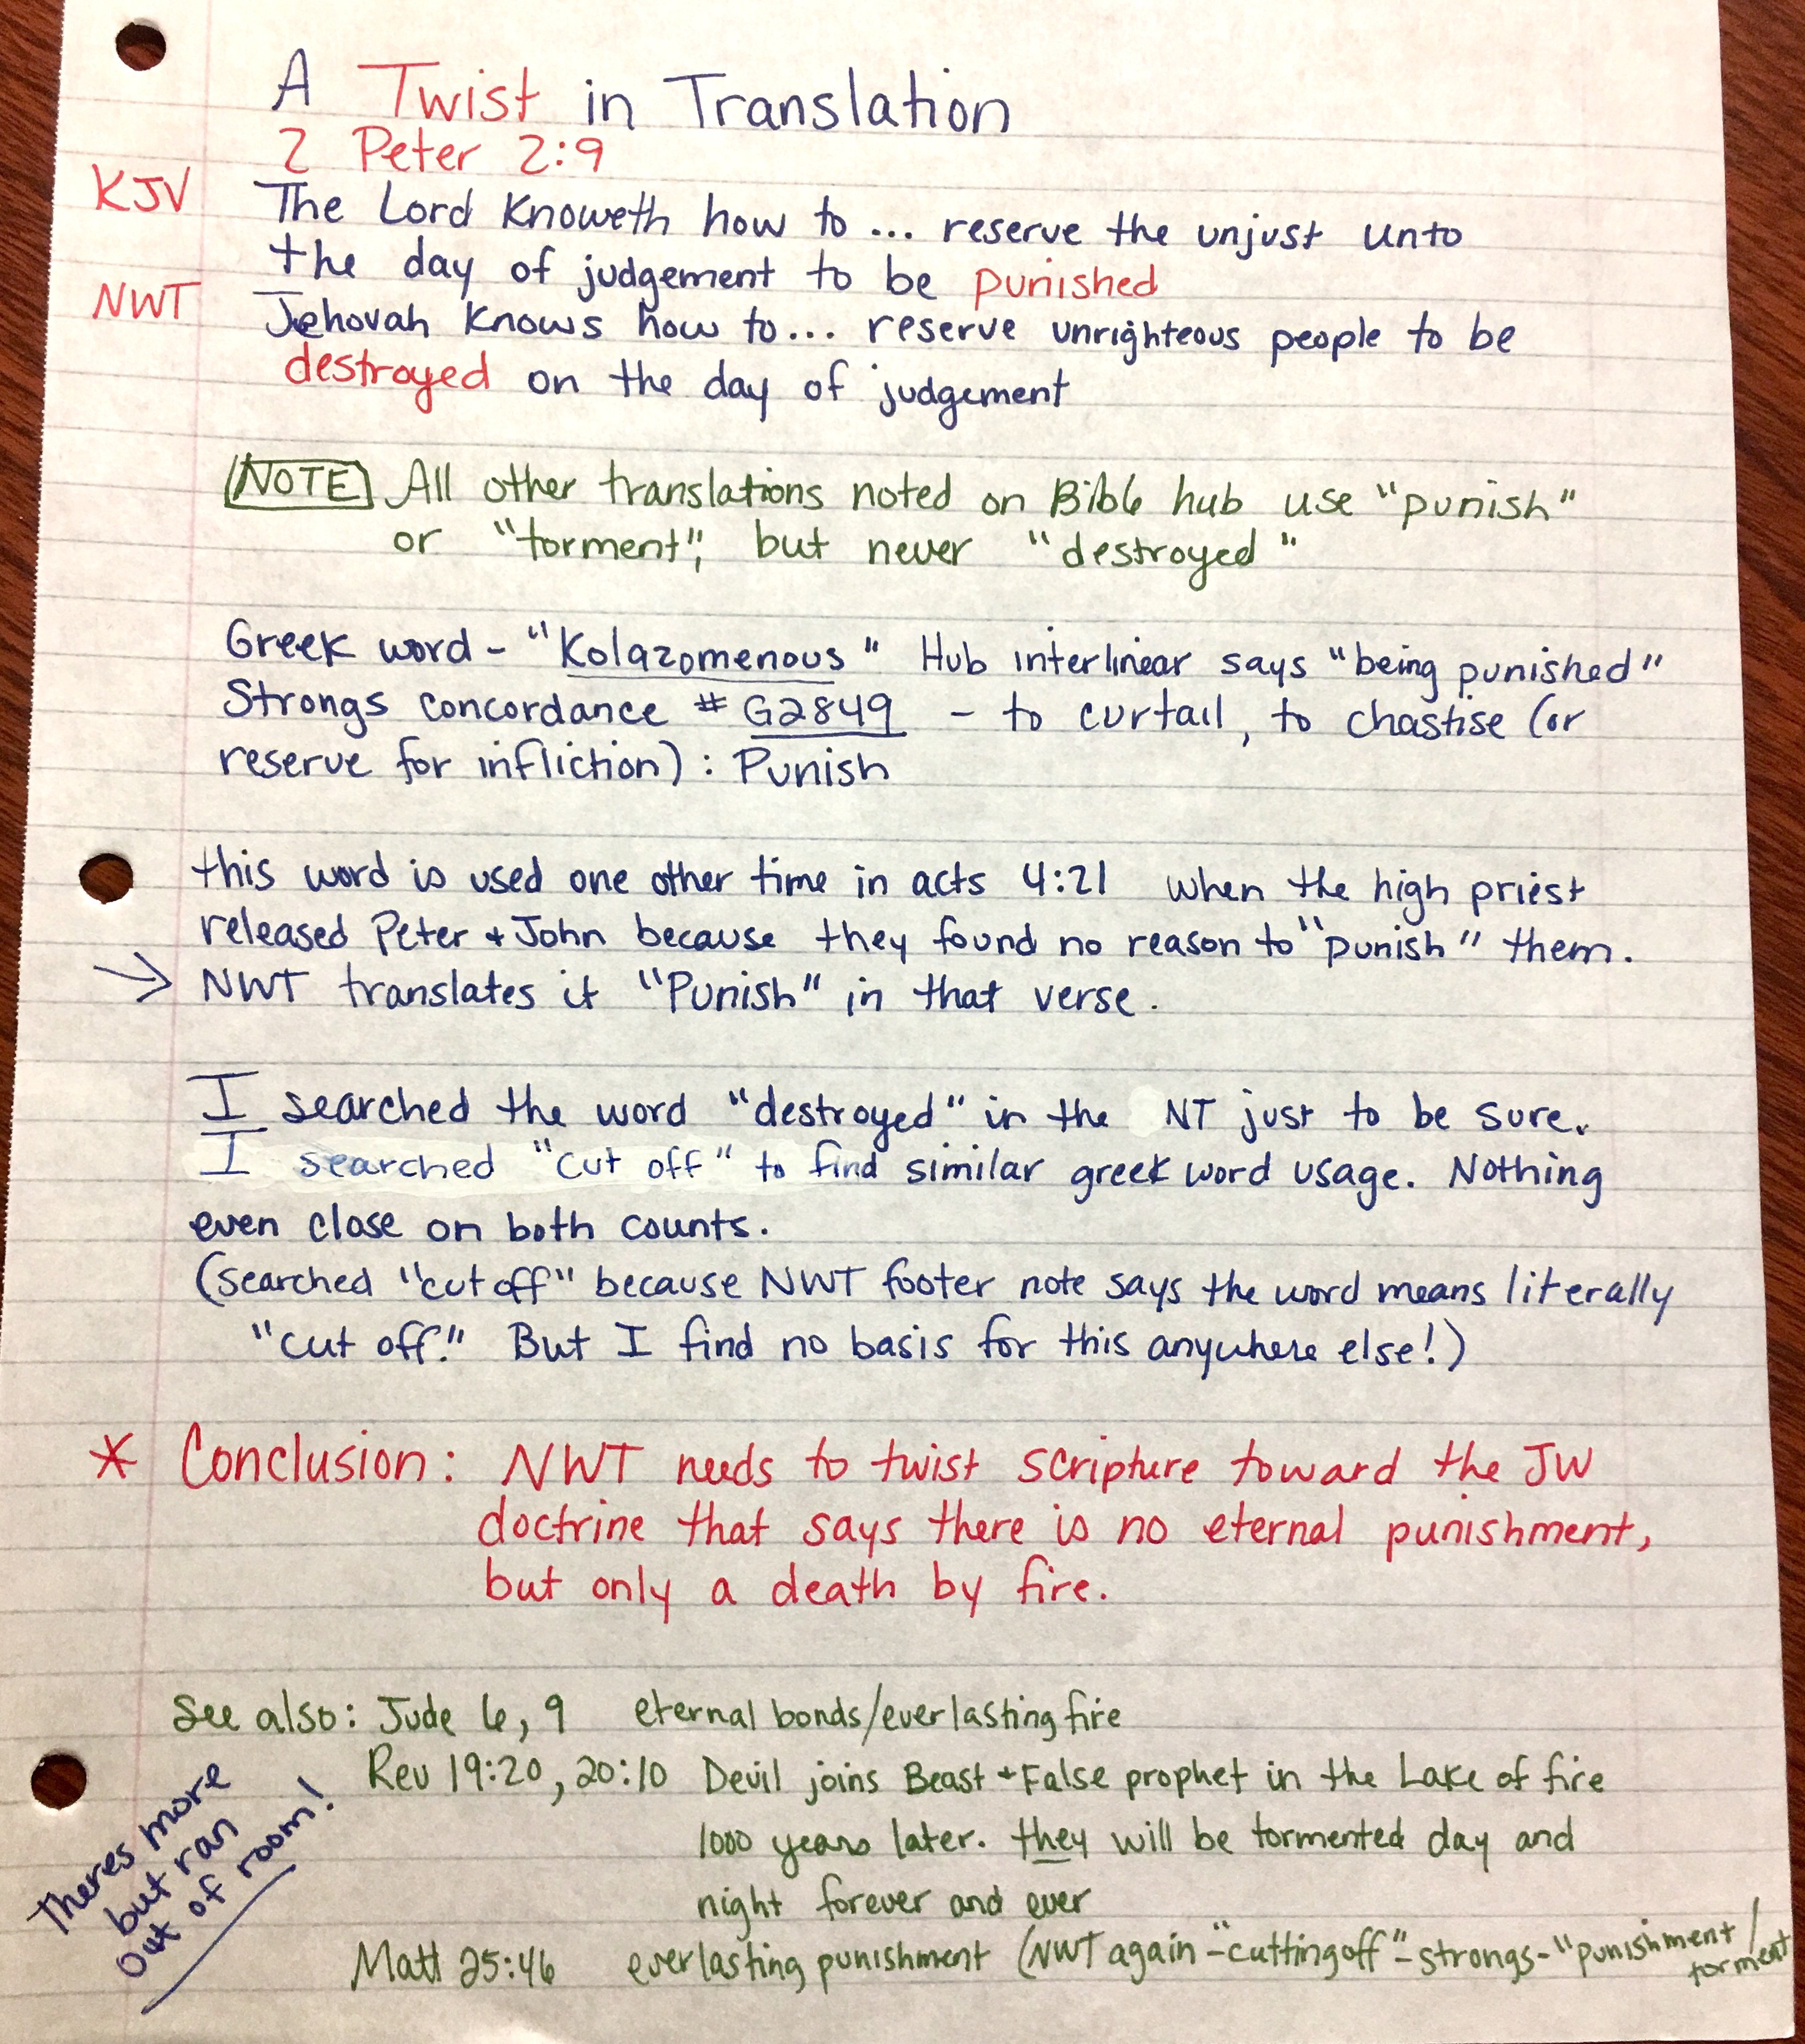 A Twist in Translation
2 Peter 2:9
KJV The Lord Knoweth how to ... reserve the unjust unto
the day of judgement to be punished
NWT Jehovah Knows how to... reserve unrighteous people to be
destroyed on the day of judgement
NOTE All other translations noted on Bible hub use "punish"
or "torment", but never "destroyed"
Greek word - "Kolazomenous" Hub interlinear says "being punished"
Strongs concordance # G2849 - to curtail, to chastise (or
reserve for infliction) : Punish
this word is used one other time in acts 4:21 when the high priest
released Peter + John because they found no reason to "punish" them.
→ NWT translates it "Punish" in that verse.
I searched the word "destroyed" in the NT just to be sure.
I searched "cut off" to find similar greek word usage. Nothing
even close on both counts.
(searched "cut off" because NWT footer note says the word means literally
"cut off." But I find no basis for this anywhere else!)
* Conclusion: NWT needs to twist scripture toward the JW
doctrine that says there is no eternal punishment,
but only a death by fire.
See also: Jude 6, 9 eternal bonds/everlasting fire
Rev 19:20, 20:10 Devil joins Beast + False prophet in the Lake of fire
1000 years later. they will be tormented day and
night forever and ever
Matt 25:46 everlasting punishment (NWT again - "cutting off" - strongs - "punishment/
torment
Theres more
but ran
out of room!